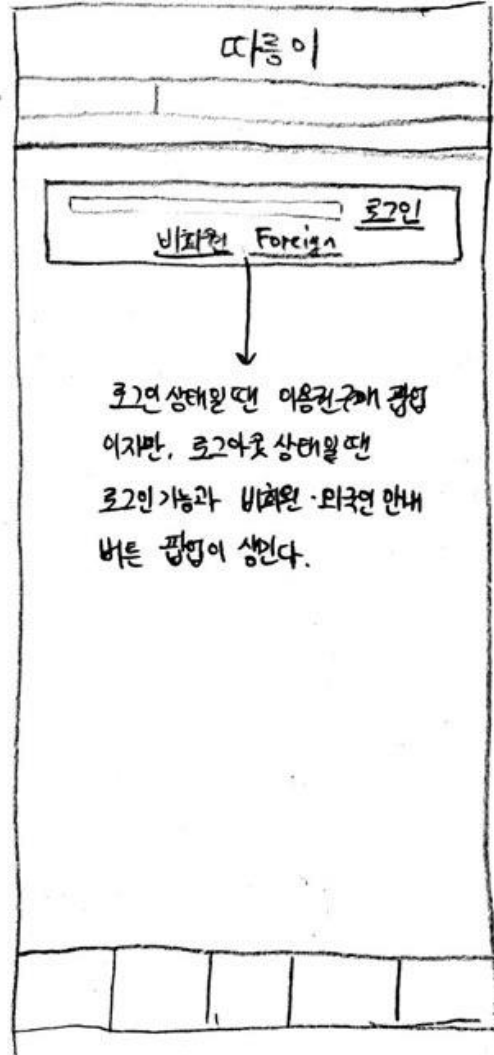 따릉이
로그인
비회원 Foreign
로그인 상태일 땐 이용권구매 팝업
이지만, 로그아웃 상태일 땐
로그인 기능과 비회원·외국인 안내
버튼 팝업이 생긴다.